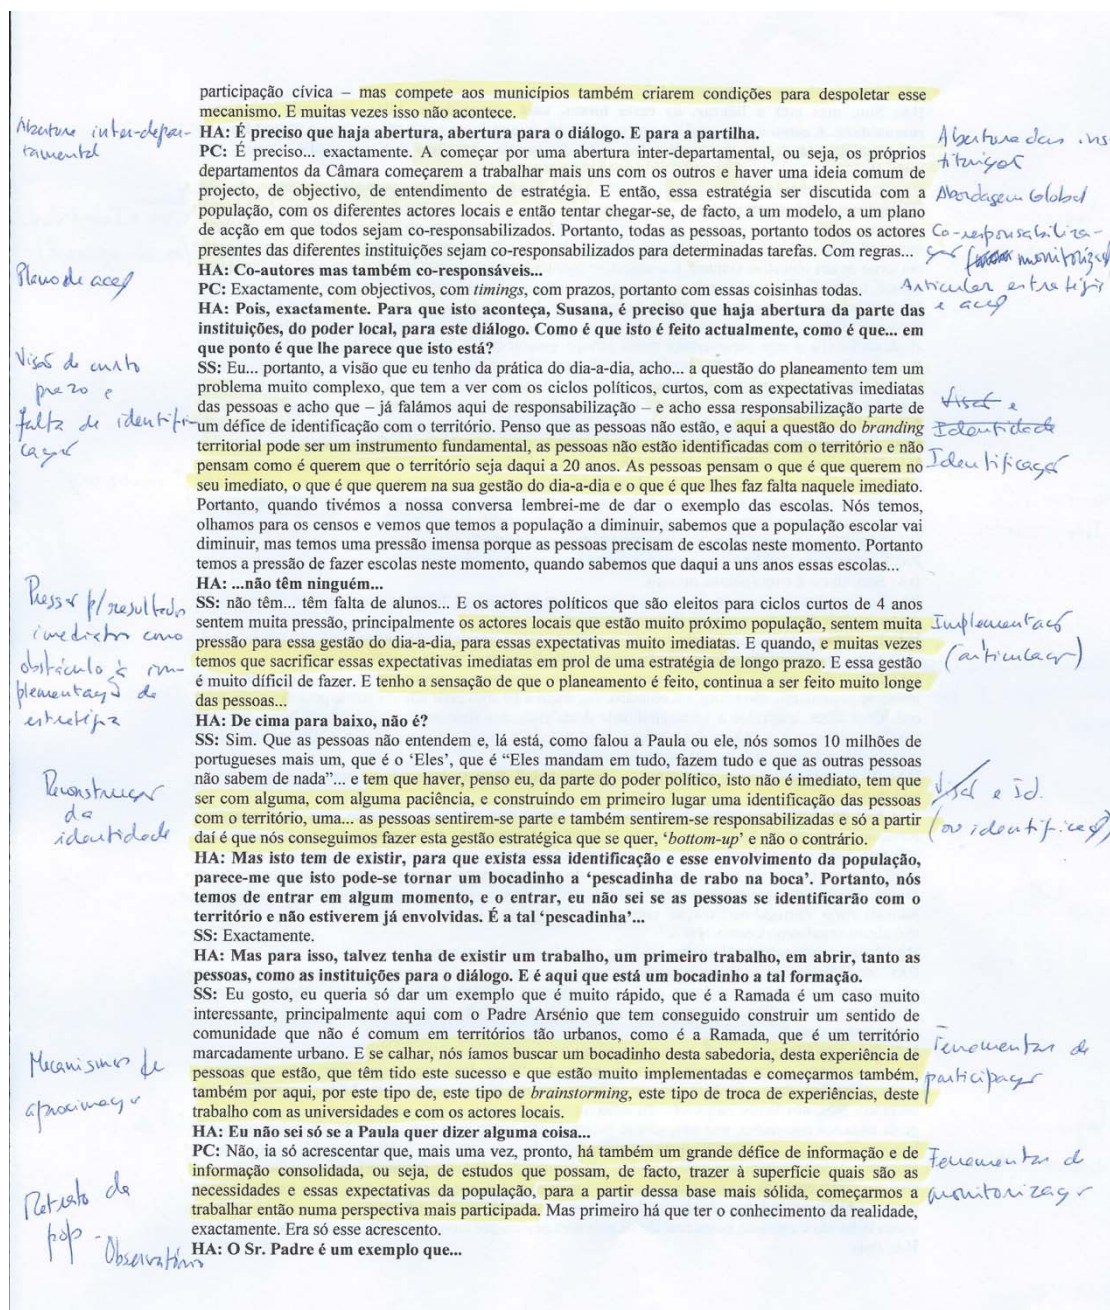 participação cívica – mas compete aos municípios também criarem condições para despoletar esse
mecanismo. E muitas vezes isso não acontece.
Abertura inter-depar-
tamental
HA: É preciso que haja abertura, abertura para o diálogo. E para a partilha.
Abertura das ins-
tituições
PC: É preciso... exactamente. A começar por uma abertura inter-departamental, ou seja, os próprios
departamentos da Câmara começarem a trabalhar mais uns com os outros e haver uma ideia comum de
projecto, de objectivo, de entendimento de estratégia. E então, essa estratégia ser discutida com a
Abordagem Global
população, com os diferentes actores locais e então tentar chegar-se, de facto, a um modelo, a um plano
de acção em que todos sejam co-responsabilizados. Portanto, todas as pessoas, portanto todos os actores
Co-responsabiliza-
presentes das diferentes instituições sejam co-responsabilizados para determinadas tarefas. Com regras...
ção monitorização
Plano de acção
HA: Co-autores mas também co-responsáveis...
Articular estratégia
e acção
PC: Exactamente, com objectivos, com timings, com prazos, portanto com essas coisinhas todas.
HA: Pois, exactamente. Para que isto aconteça, Susana, é preciso que haja abertura da parte das
instituições, do poder local, para este diálogo. Como é que isto é feito actualmente, como é que... em
que ponto é que lhe parece que isto está?
Visão de curto
prazo e
falta de identifi-
cação
SS: Eu... portanto, a visão que eu tenho da prática do dia-a-dia, acho... a questão do planeamento tem um
problema muito complexo, que tem a ver com os ciclos políticos, curtos, com as expectativas imediatas
das pessoas e acho que – já falámos aqui de responsabilização – e acho essa responsabilização parte de
um défice de identificação com o território. Penso que as pessoas não estão, e aqui a questão do branding
territorial pode ser um instrumento fundamental, as pessoas não estão identificadas com território e não
pensam como é querem que o território seja daqui a 20 anos. As pessoas pensam o que é que querem no
seu imediato, o que é que querem na sua gestão do dia-a-dia e o que é que lhes faz falta naquele imediato.
Visão e
Identidade
Identificação
Portanto, quando tivémos a nossa conversa lembrei-me de dar o exemplo das escolas. Nós temos,
olhamos para os censos e vemos que temos a população a diminuir, sabemos que a população escolar vai
diminuir, mas temos uma pressão imensa porque as pessoas precisam de escolas neste momento. Portanto
temos a pressão de fazer escolas neste momento, quando sabemos que daqui a uns anos essas escolas...
HA: ...não têm ninguém...
Pressão p/ resultados
imediatos como
obstáculo à im-
plementação de
estratégia
SS: não têm... têm falta de alunos... E os actores políticos que são eleitos para ciclos curtos de 4 anos
sentem muita pressão, principalmente os actores locais que estão muito próximo população, sentem muita
pressão para essa gestão do dia-a-dia, para essas expectativas muito imediatas. E quando, e muitas vezes
temos que sacrificar essas expectativas imediatas em prol de uma estratégia de longo prazo. E essa gestão
é muito díficil de fazer. E tenho a sensação de que o planeamento é feito, continua a ser feito muito longe
das pessoas...
Implementação
(articulação)
HA: De cima para baixo, não é?
SS: Sim. Que as pessoas não entendem e, lá está, como falou a Paula ou ele, nós somos 10 milhões de
portugueses mais um, que é o ‘Eles’, que é “Eles mandam em tudo, fazem tudo e que as outras pessoas
não sabem de nada”... e tem que haver, penso eu, da parte do poder político, isto não é imediato, tem que
ser com alguma, com alguma paciência, e construindo em primeiro lugar uma identificação das pessoas
com o território, uma... as pessoas sentirem-se parte e também sentirem-se responsabilizadas e só a partir
daí é que nós conseguimos fazer esta gestão estratégica que se quer, ‘bottom-up’ e não o contrário.
Reconstrução
da
identidade
Visão e Id.
(ou identificação)
HA: Mas isto tem de existir, para que exista essa identificação e esse envolvimento da população,
parece-me que isto pode-se tornar um bocadinho a ‘pescadinha de rabo na boca’. Portanto, nós
temos de entrar em algum momento, e o entrar, eu não sei se as pessoas se identificarão com o
território e não estiverem já envolvidas. É a tal ‘pescadinha’...
SS: Exactamente.
HA: Mas para isso, talvez tenha de existir um trabalho, um primeiro trabalho, em abrir, tanto as
pessoas, como as instituições para o diálogo. E é aqui que está um bocadinho a tal formação.
SS: Eu gosto, eu queria só dar um exemplo que é muito rápido, que é a Ramada é um caso muito
interessante, principalmente aqui com o Padre Arsénio que tem conseguido construir um sentido de
comunidade que não é comum em territórios tão urbanos, como é a Ramada, que é um território
marcadamente urbano. E se calhar, nós íamos buscar um bocadinho desta sabedoria, desta experiência de
pessoas que estão, que têm tido este sucesso e que estão muito implementadas e começarmos também,
também por aqui, por este tipo de, este tipo de brainstorming, este tipo de troca de experiências, deste
trabalho com as universidades e com os actores locais.
Mecanismos de
aproximação
Ferramentas de
participação
HA: Eu não sei só se a Paula quer dizer alguma coisa...
PC: Não, ia só acrescentar que, mais uma vez, pronto, há também um grande défice de informação e de
informação consolidada, ou seja, de estudos que possam, de facto, trazer à superfície quais são as
necessidades e essas expectativas da população, para a partir dessa base mais sólida, começarmos a
trabalhar então numa perspectiva mais participada. Mas primeiro há que ter o conhecimento da realidade,
exactamente. Era só esse acrescento.
Ferramentas de
monitorização
Retrato da
pop -
Observatório
HA: O Sr. Padre é um exemplo que...